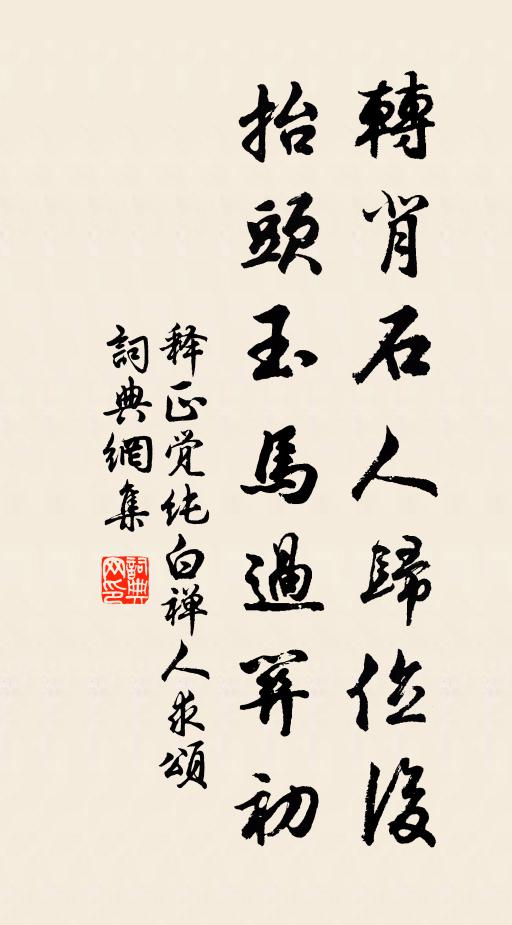 轉背石人歸位後
抬頭玉馬過關初
释正觉纯白禅人求頌
詞典網集
詞典网印